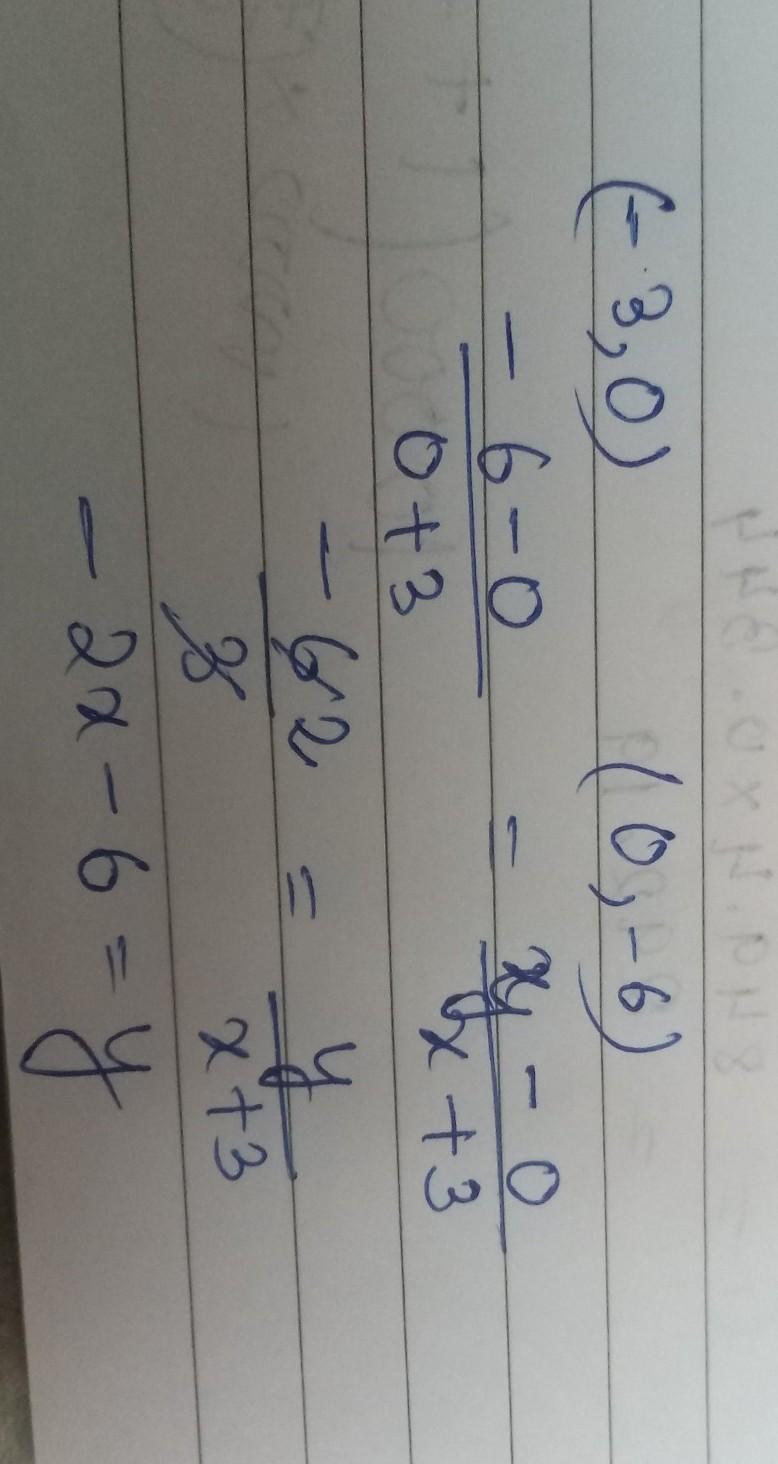 (-3,0) (0,-6)
-6-0/0+3 = y-0/x+3
-6 2/3 = y/x+3
-2x-6=y